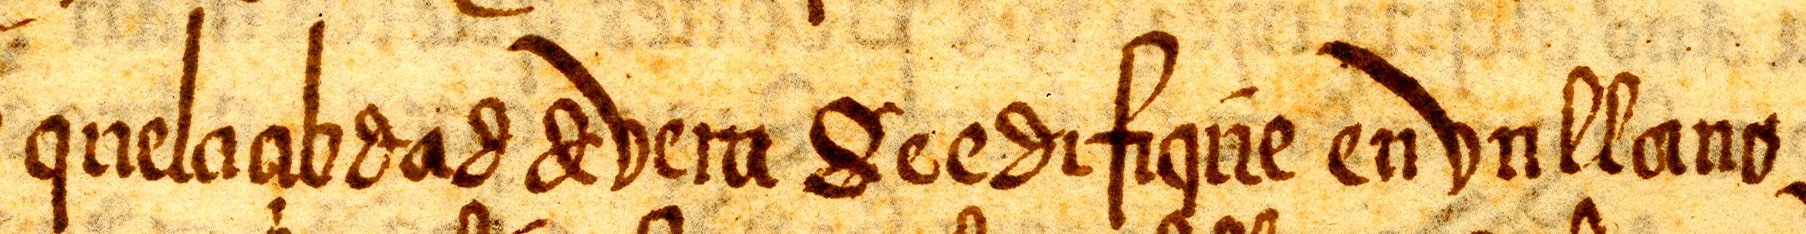 quela çibdad de vera Se edifique en vn llano